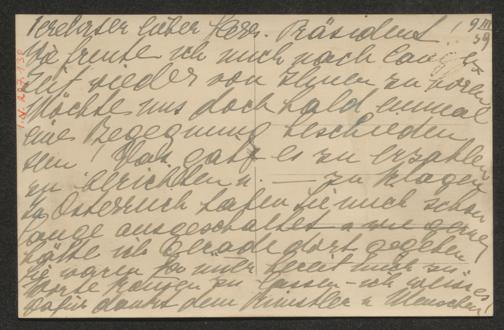 Verehrter lieber Herr Präsident. 9 III 39
Da freute ich mich nach langer
Zeit wieder von Ihnen zu hören
Möchte uns doch bald einmal
eine Begegnung beschieden
sein Was gäbe es zu erzählen
zu berichten u. — zu klagen
In Österreich haben sie mich schon
lange ausgeschaltet u wie gerne
hätte ich gerade dort gegeben
Sie waren so mich bereit mich zu
Worte kommen zu lassen - ich weiss es!
Dafür dankt dem Künstler u Menschen